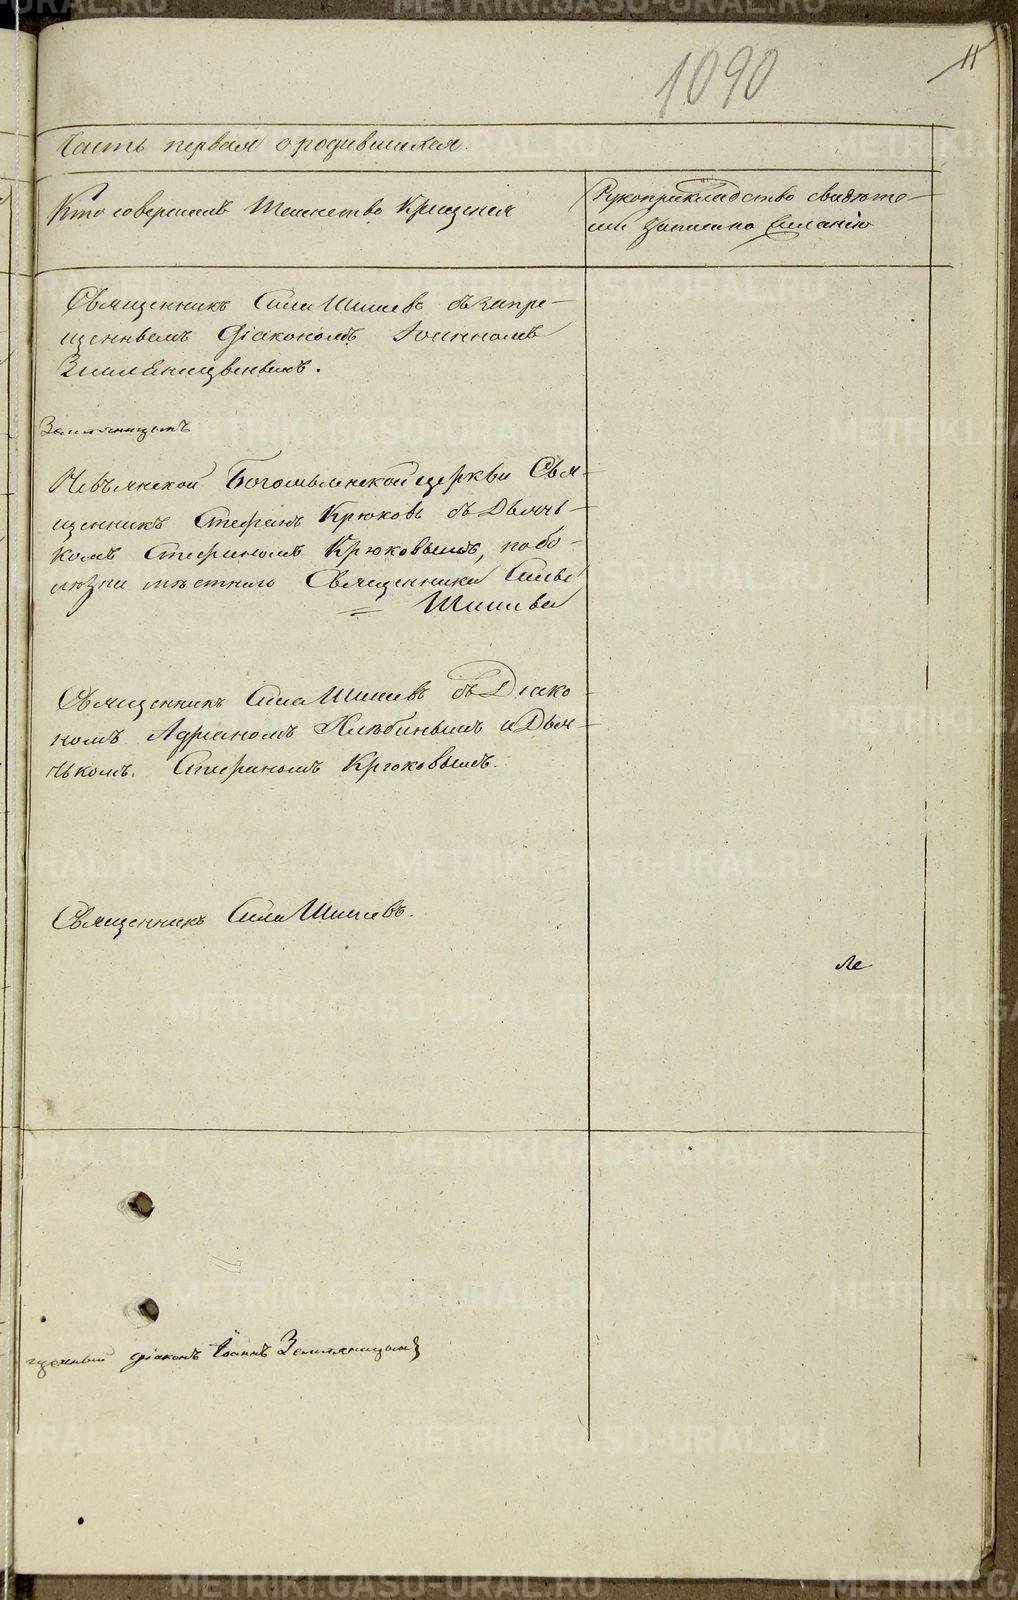 1090
11
Часть первая о родившихся.
Кто совершалъ Таинство Крещенія
Рукоприкладство свидѣте-
лей записано желанію
Священникъ Сила Шишевъ съ запре-
щеннымъ діакономъ Іоанномъ
Земляницынымъ.
Земляницынъ
Невьянской Богоявленской церкви Свя-
щенникъ Стефанъ Крюковъ съ Дьячь-
комъ Стефаномъ Крюковымъ, по бо-
лѣзни мѣстнаго Священника Силы
Шишева
Священникъ Сила Шишевъ съ Діако-
номъ Адріаномъ Хлюбинымъ и Дья-
чькомъ Стефаномъ Крюковымъ.
Священникъ Сила Шишевъ.
ле
щенный діаконъ Іоаннъ Земляницынъ
METRIKI.GASO-URAL.RU